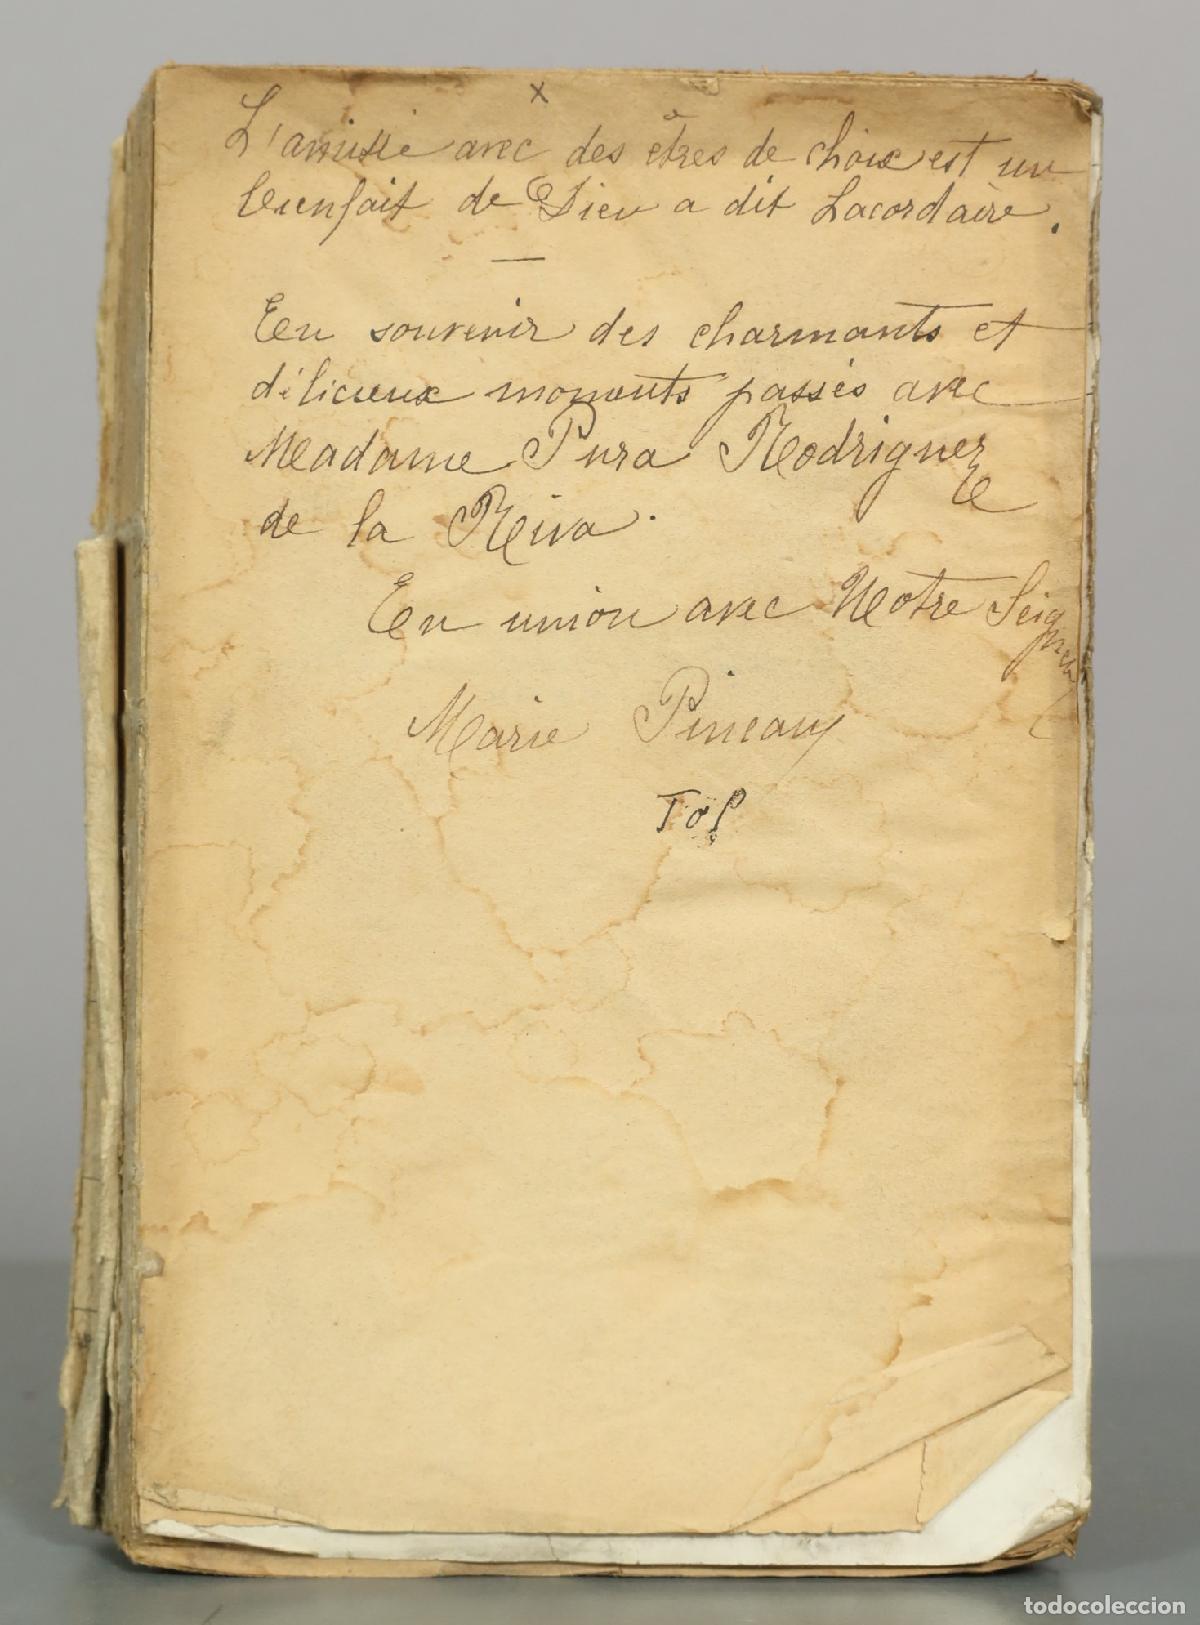 x
L'amitié avec des êtres de choix est un
bienfait de Dieu a dit Lacordaire.
En souvenir des charmants et
délicieux moments passés avec
Madame Pura Rodriguez
de la Reiva.
En union avec Notre Seigneur
Marie Pineau
todocoleccion